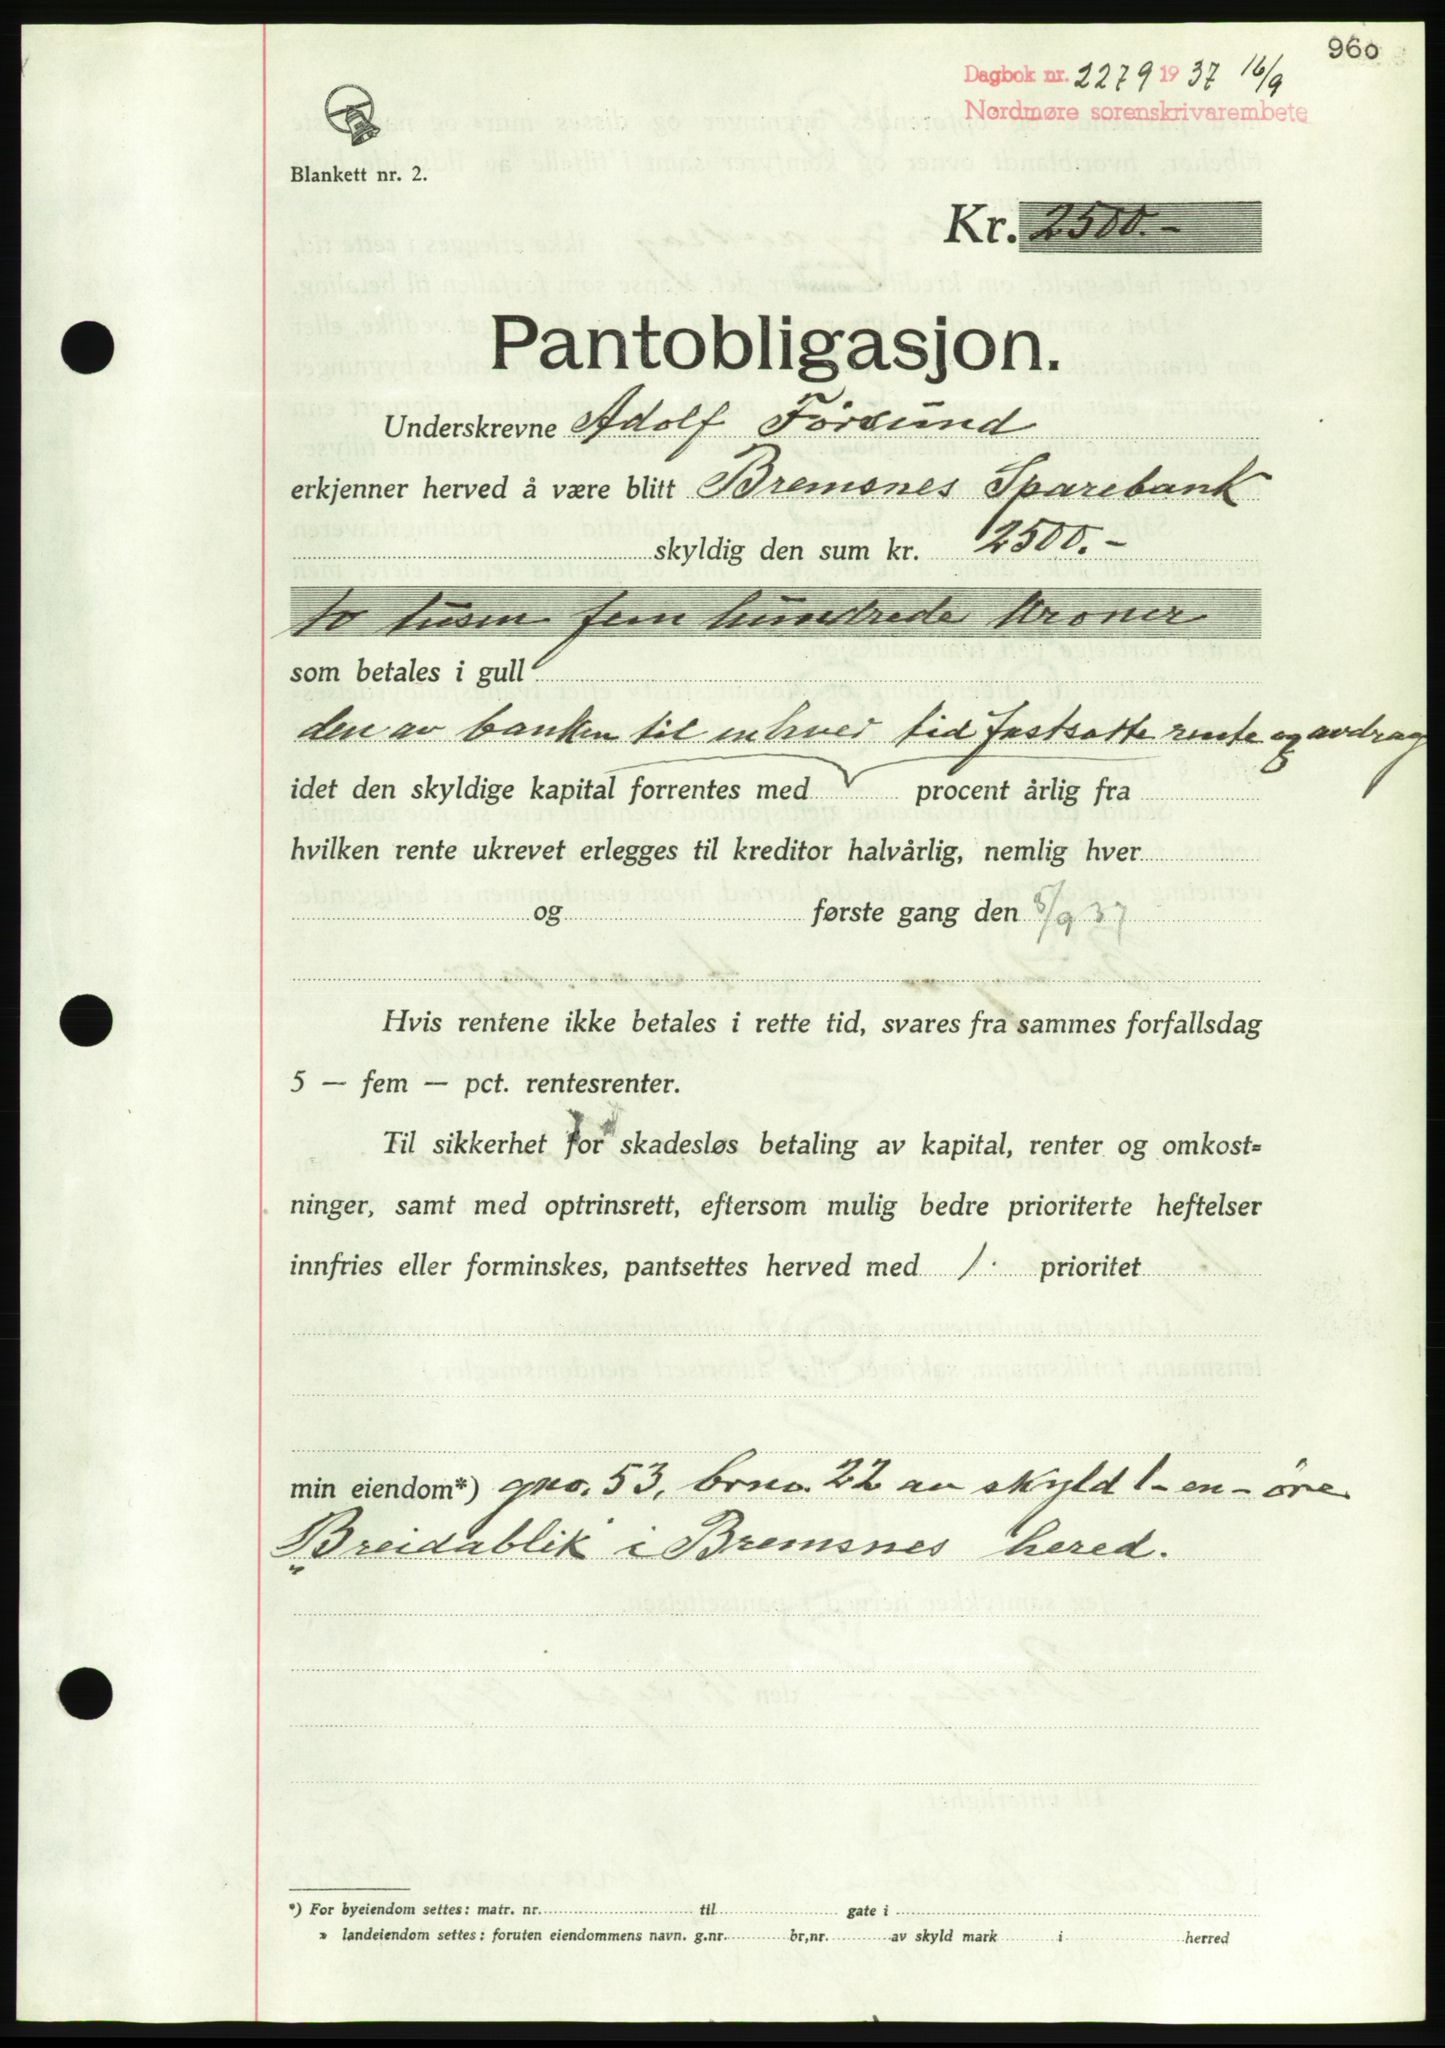 960
Dagbok nr. 2279 1937 16/9
Nordmøre sorenskrivarembete
Blankett nr. 2.
Kr. 2500.-
Pantobligasjon.
Underskrevne Adolf Førsund
erkjenner herved å være blitt Bremsnes Sparebank
skyldig den sum kr. 2500.-
to tusen fem hundrede kroner
som betales i gull
den av banken til enhver tid fastsatte rente og avdrag
idet den skyldige kapital forrentes med procent årlig fra
hvilken rente ukrevet erlegges til kreditor halvårlig, nemlig hver
og første gang den 8/9 37
Hvis rentene ikke betales i rette tid, svares fra sammes forfallsdag
5 — fem — pct. rentesrenter.
Til sikkerhet for skadesløs betaling av kapital, renter og omkost=
ninger, samt med optrinsrett, eftersom mulig bedre prioriterte heftelser
innfries eller forminskes, pantsettes herved med 1. prioritet
min eiendom*) gno. 53, brno. 22 av skyld 1- en - öre
„Breidablik" i Bremsnes hered.
*) For byeiendom settes: matr. nr. til gate i
» landeiendom settes: foruten eiendommens navn. g.nr. br,nr. av skyld mark i herred